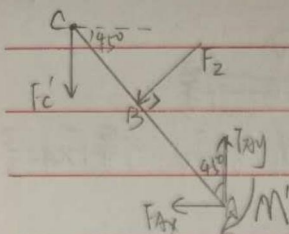 C
45°
Fc'
F2
B
FAy
45°
FAx
A
M